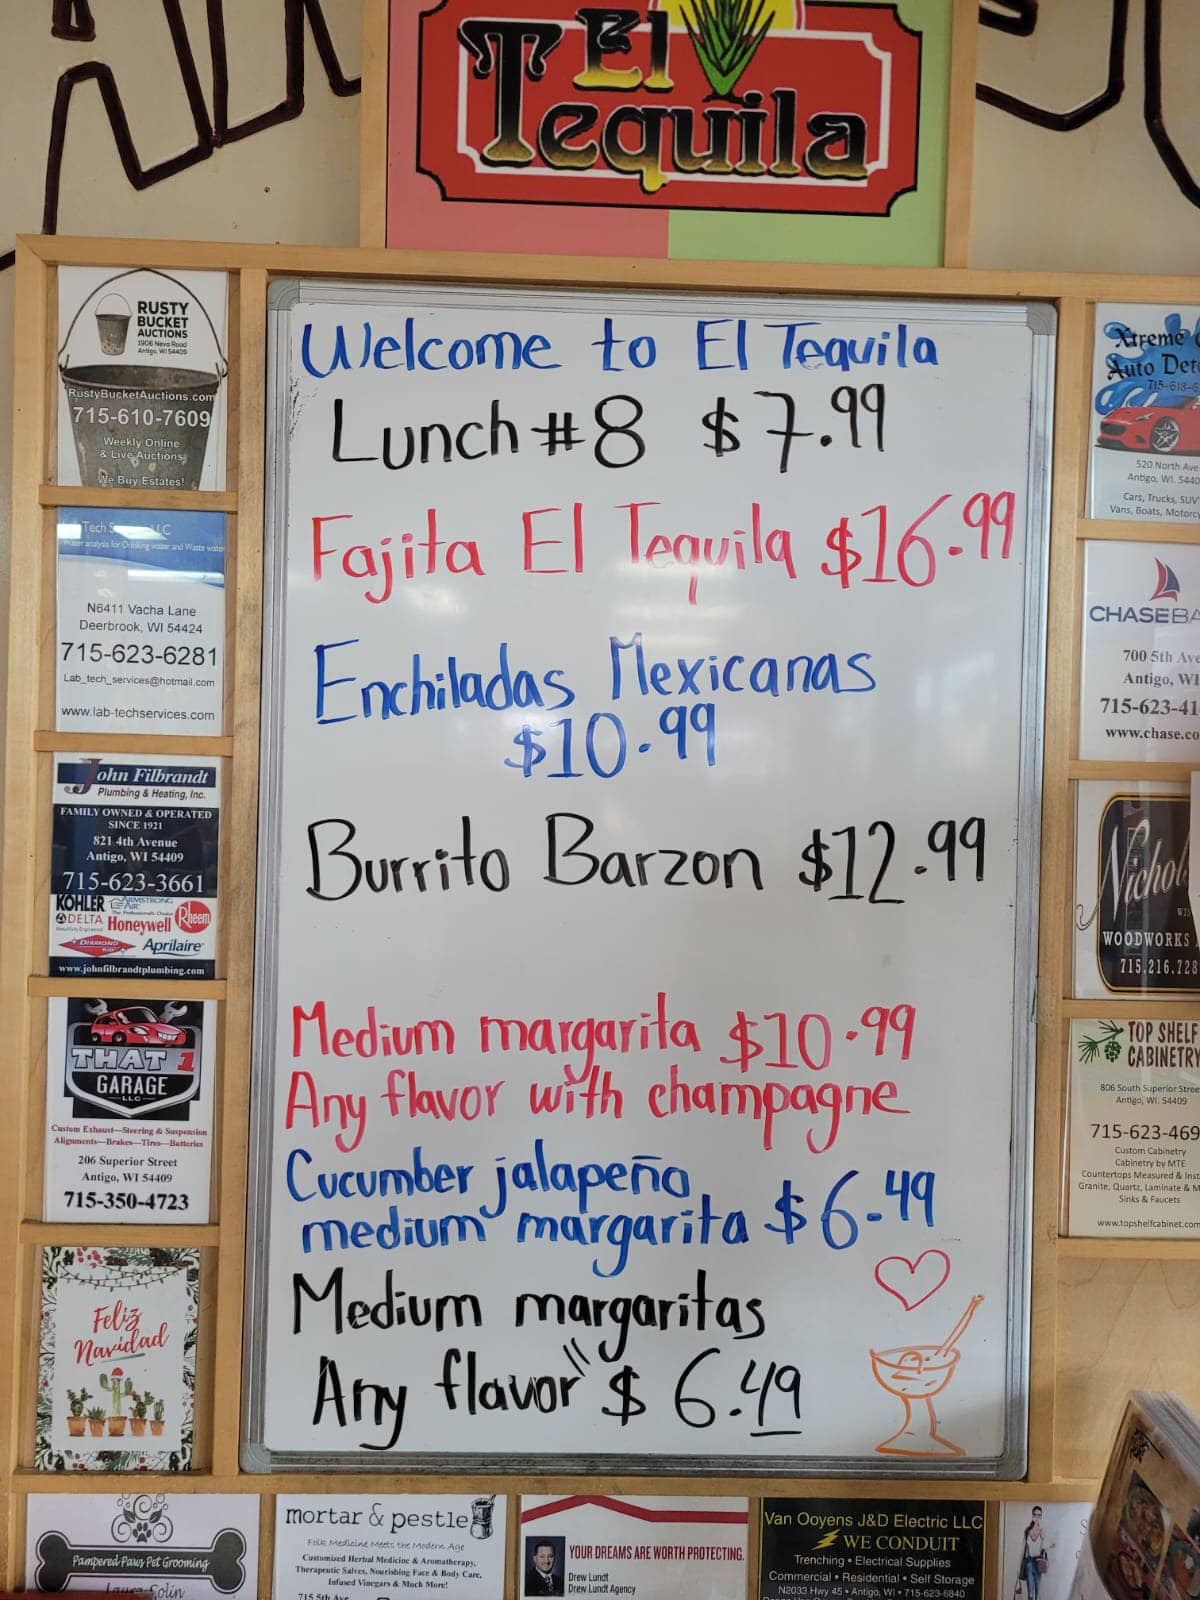 El
Tequila
Welcome to El Tequila
Lunch #8 $7.99
Fajita El Tequila $16.99
Enchiladas Mexicanas
$10.99
Burrito Barzon $12.99
Medium margarita $10.99
Any flavor with champagne
Cucumber jalapeño
medium margarita $6.49
Medium margaritas
Any flavor" $6.49
RUSTY
BUCKET
AUCTIONS
1906 Neva Road
Antigo, WI 54409
RustyBucketAuctions.com
715-610-7609
Weekly Online
& Live Auctions
We Buy Estates!
Tech
LLC
Water analysis for Drinking water and Waste water
N6411 Vacha Lane
Deerbrook, WI 54424
715-623-6281
Lab_tech_services@hotmail.com
www.lab-techservices.com
John Filbrandt
Plumbing & Heating, Inc.
FAMILY OWNED & OPERATED
SINCE 1921
821 4th Avenue
Antigo, WI 54409
715-623-3661
KOHLER ARMSTRONG AIR
DELTA Honeywell Rheem
DIAMOND Aprilaire
www.johnfilbrandtplumbing.com
THAT 1
GARAGE
LLC
Custom Exhaust—Steering & Suspension
Alignments—Brakes—Tires—Batteries
206 Superior Street
Antigo, WI 54409
715-350-4723
Feliz
Navidad
Xtreme
Auto Det
715-618-6
520 North Ave
Antigo, WI. 5440
Cars, Trucks, SUV
Vans, Boats, Motorcy
CHASE BA
700 5th Ave
Antigo, WI
715-623-41
www.chase.co
Nichol
WOODWORKS
715.216.728
TOP SHELF
CABINETRY
806 South Superior Stree
Antigo, WI. 54409
715-623-469
Custom Cabinetry
Cabinetry by MTE
Countertops Measured & Inst
Granite, Quartz, Laminate & M
Sinks & Faucets
www.topshelfcabinet.com
Pampered Paws Pet Grooming
Laura Solin
mortar & pestle
Folk Medicine Meets the Modern Age
Customized Herbal Medicine & Aromatherapy,
Therapeutic Salves, Nourishing Face & Body Care,
Infused Vinegars & Much More!
715 5th Ave
YOUR DREAMS ARE WORTH PROTECTING.
Drew Lundt
Drew Lundt Agency
Van Ooyens J&D Electric LLC
WE CONDUIT
Trenching • Electrical Supplies
Commercial • Residential • Self Storage
N2033 Hwy 45 • Antigo, WI • 715-623-6840